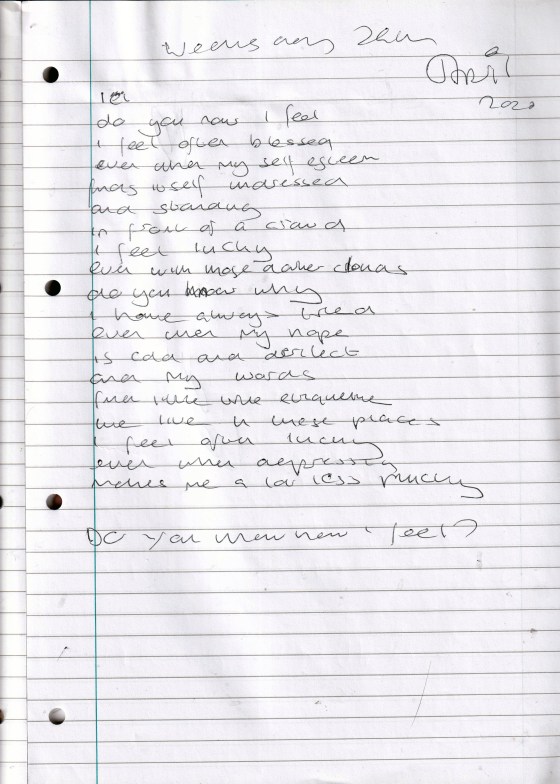 April
202
do you now I feel
I feel often blessed
even when my self esteem
finds itself undressed
and standing
in front of a crowd
I feel lucky
even with those darker clouds
do you know why
I have always tried
even when my hope
is cold and derilect
and my words
find little
we live in these places
I feel often lucky
even when depression
makes me a lot less plucky
Do you know how I feel?